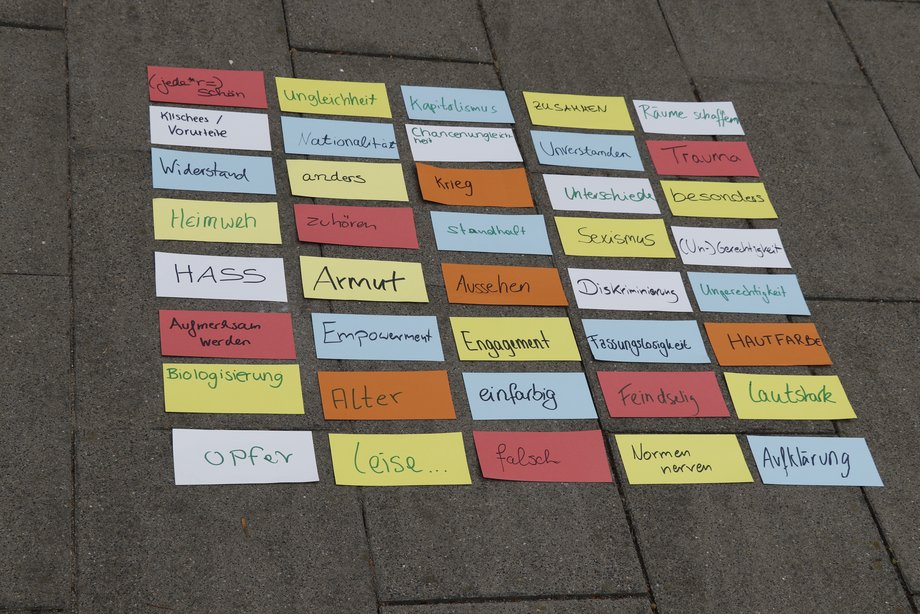 (jede*r=)
schön
Ungleichheit
Kapitalismus
ZUSAMMEN
Räume schaffen
Klischees /
Vorurteile
Nationalität
Chancenungleich
heit
Unverstanden
Trauma
Widerstand
anders
Krieg
Unterschiede
besonders
Heimweh
zuhören
standhaft
Sexismus
(Un-)Gerechtigkeit
HASS
Armut
Aussehen
Diskriminierung
Ungerechtigkeit
Aufmerksam
werden
Empowerment
Engagement
Fassungslosigkeit
HAUTFARBE
Biologisierung
Alter
einfarbig
Feindselig
lautstark
OPfer
leise...
falsch
Normen
nerven
Aufklärung